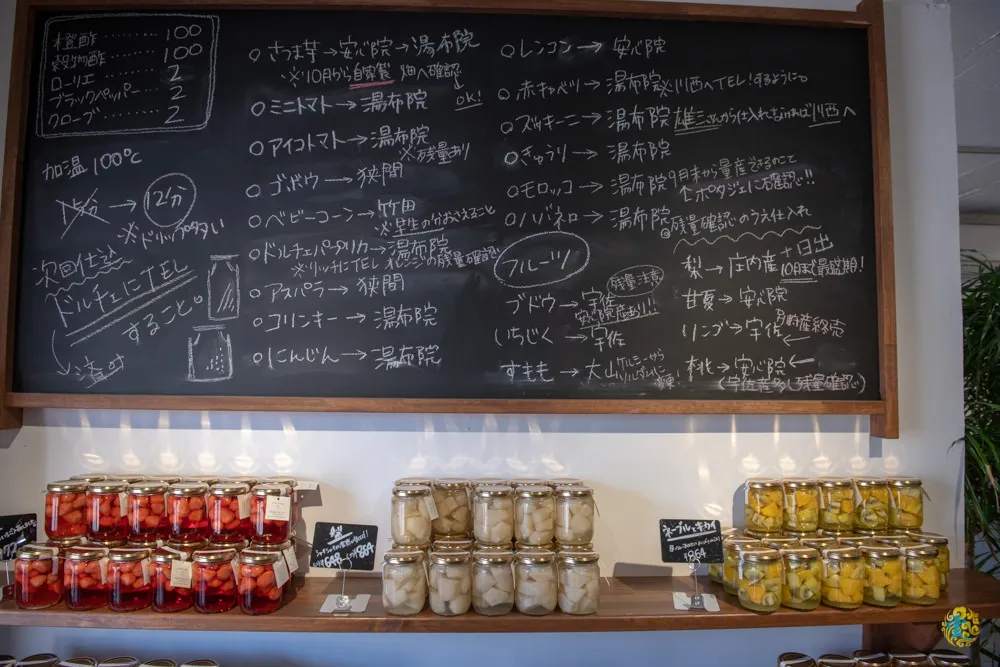 橙酢 ‥‥‥‥ 100
穀物酢 ‥‥‥ 100
ローリエ ‥‥‥ 2
ブラックペッパー ‥‥ 2
クローブ ‥‥‥ 2
加温 100℃
15分 → 12分
※ドリップ多い
次回仕込
ドルチェにTEL
すること。
済み
○さつま芋→安心院→湯布院
※10月から自家製 畑へ確認
OK!
○ミニトマト→湯布院
○アイコトマト→湯布院
※残量あり
○ゴボウ→狭間
○ベビーコーン→竹田
※早生の分おさえること
○ドルチェパプリカ→湯布院
※リッチにTEL オレンジの残量確認
○アスパラ→狭間
○コリンキー→湯布院
○にんじん→湯布院
○レンコン→安心院
○赤キャベツ→湯布院※川西へTEL!するように
○ズッキーニ→湯布院 雄三さんから仕入れなければ川西へ
○きゅうり→湯布院
○モロッコ→湯布院 9月末から量産
ポタジェに確認!!
○ハバネロ→湯布院
◎残量確認のうえ仕入れ
フルーツ
残量注意
ブドウ→宇佐
安心院産あり!!
いちじく→宇佐
すもも→大山
梨→庄内産+日出
10月まで最盛期!
甘夏→安心院
リンゴ→宇佐
桃→安心院←
(宇佐産なし残量確認)
648
864
ネーブルとキウイ
864